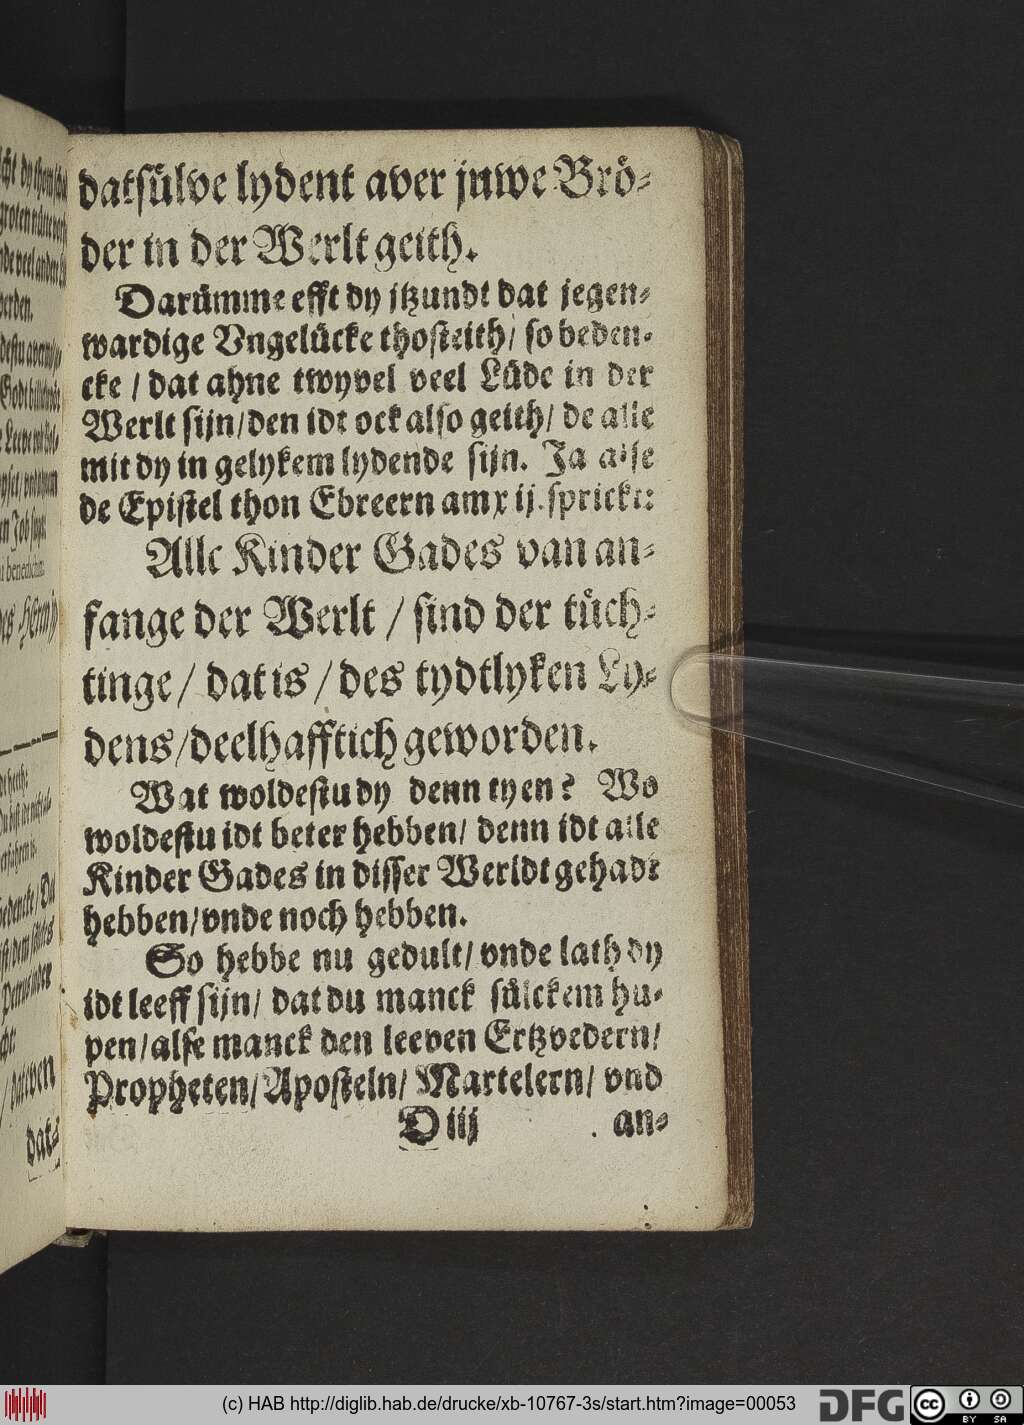 datsülve lydent aver juwe Brö-
der in der Werlt geith.
Darümme efft dy itzundt dat jegen-
wardige Vngelücke thosteith/ so beden-
cke / dat ahne twyvel veel Lüde in der
Werlt sijn/den idt ock also geith/ de alle
mit dy in gelykem lydende sijn. Ja alse
de Epistel thon Ebreern am xij. sprickt:
Alle Kinder Gades van an-
fange der Werlt / sind der tüch-
tinge / dat is / des tydtlyken Ly-
dens/deelhafftich geworden.
Wat woldestu dy denn tyen? Wo
woldestu idt beter hebben/ denn idt alle
Kinder Gades in disser Werldt gehadt
hebben/vnde noch hebben.
So hebbe nu gedult/ vnde lath dy
idt leeff sijn/ dat du manck sülckem hu-
pen/alse manck den leeven Ertzvedern/
Propheten/Aposteln/ Martelern/ vnd
D iij an-
(c) HAB http://diglib.hab.de/drucke/xb-10767-3s/start.htm?image=00053
DFG cc BY SA